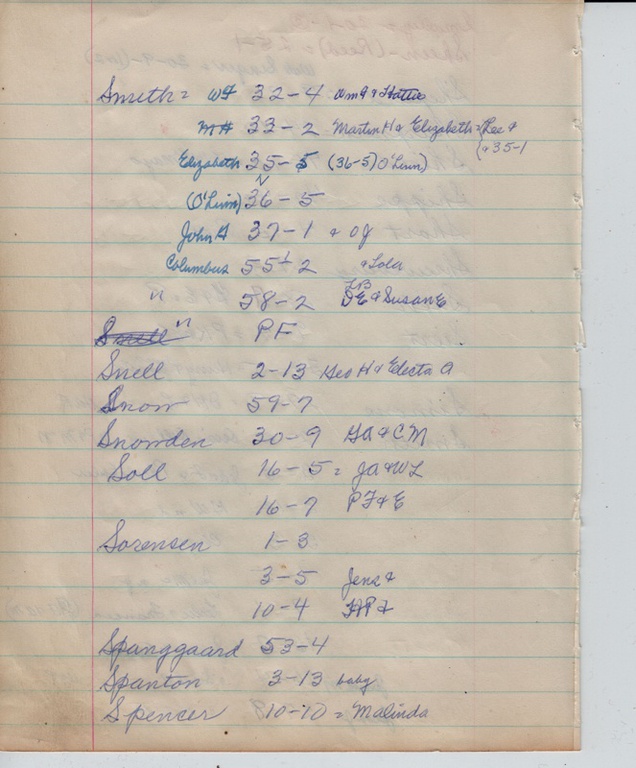 Smith = WF 32-4 Wm F & Hattie
MH 33-2 Martin H & Elizabeth = {Lee &
{& 35-1
Elizabeth 35-5 (36-5) O'Linn)
(O'Linn) 36-5
John G 37-1 & OJ
Columbus 55-2 & Lola
" 58-2 DE & Susan E
Snell " PF
Snell 2-13 Geo H & Electa A
Snow 59-7
Snowden 30-9 GA & CM
Soll 16-5 = JA & WL
16-7 PF & E
Sorensen 1-3
3-5 Jens &
10-4 &
Spanggaard 53-4
Spanton 3-13 baby
Spencer 10-10 = Malinda